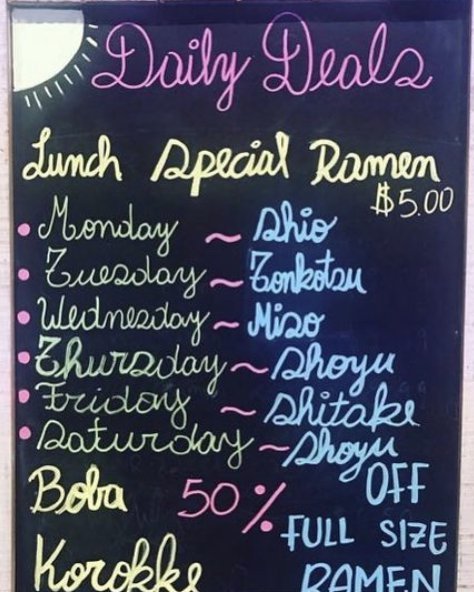 Daily Deals
Lunch Special Ramen
$5.00
• Monday ~ Shio
• Tuesday ~ Tonkotsu
• Wednesday ~ Miso
• Thursday ~ Shoyu
• Friday ~ Shitake
• Saturday ~ Shoyu
Boba 50% OFF
FULL SIZE
Korokke RAMEN